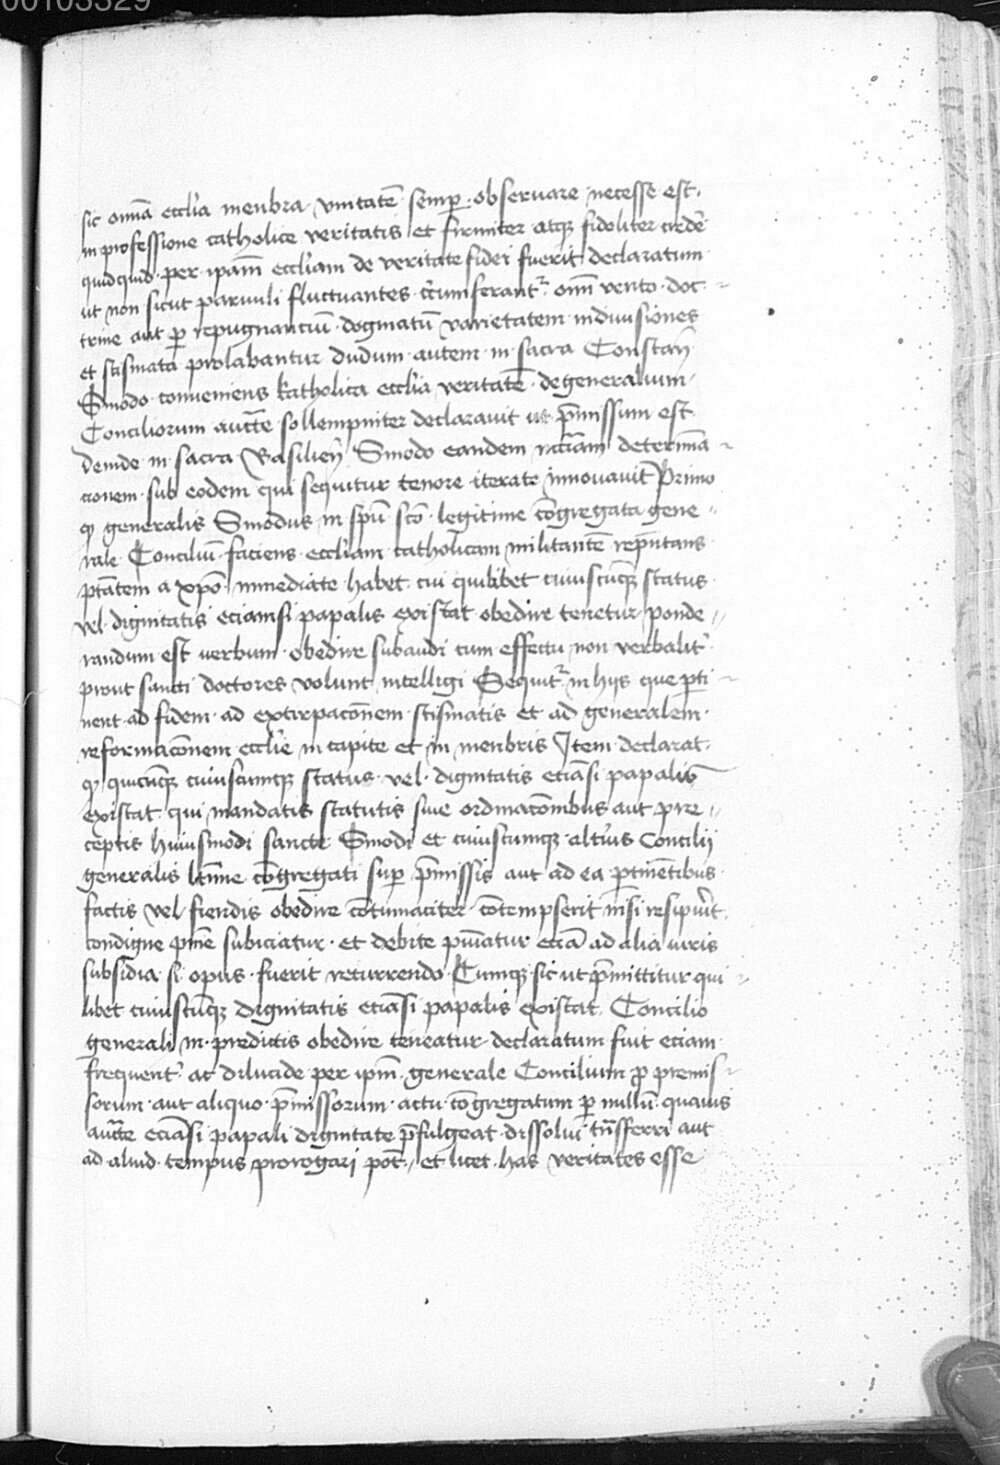 00103329
sic om̄ia eccl̄ia menbra vnitatē semꝑ obseruare necesse est
in professione catholice veritatis et firmiter atqꝫ fideliter credē
quidquid per ipam̄ eccl̄iam de veritate fidei fuerit declaratum
ut non sicut paruuli fluctuantes circumferant᷑ omī vento doc-
trine aut ꝑ repugnanciū dogmatū varietatem in diuisiones
et scismata prolabantur dudum autem in sacra Constan̄
Sinodo conueniens katholica eccl̄ia veritatē de generalium
Conciliorum auctē sollempniter declarauit ut p̄missum est
deinde in sacra Basilien̄ Sinodo eandem declarac̄oem determīa-
cionem sub eodem qui sequitur tenore iterato innouauit Primo
ꝙ generalis Sinodus in spū scō legitime cōgregata gene-
rale Conciliū faciens eccl̄iam catholicam militantē rep̄ntans
ptātem a xp̄o immediate habet cui quilibet cuiuscūqꝫ status
vel dignitatis eciamsi papalis existat obedire tenetur ponde-
randum est uerbum obedire subaudi cum effectu non verbalit᷑
prout sancti doctores volunt intelligi Sequit᷑ in hijs que ꝑti-
nent ad fidem ad extirpacōnem scismatis et ad generalem
reformacōnem eccl̄ie in capite et in menbris Item declarat
ꝙ quicūqꝫ cuiuscumqꝫ status vel dignitatis eciāsi papalis
existat qui mandatis statutis siue ordinacōnibus aut pre-
ceptis huiusmodi sancte Sinodi et cuiuscumqꝫ alt᷑ius Concilij
generalis l̄time cōgregati suꝑ p̄missis aut ad ea ꝑtinētibus
factis vel fiendis obedire cōtumaciter cōtempserit nisi resipu᷑it
condigne pn̄ie subiciatur et debite puniatur eciā ad alia iuris
subsidia si opus fuerit recurrendo Cumqꝫ sic ut p̄mittitur qui-
libet cuiuscūqꝫ dignitatis eciāsi papalis existat Concilio
generali in predictis obedire teneatur declaratum fuit eciam
frequent᷑ ac dilucide per ipm̄ generale Concilium ꝓ premis-
sorum aut aliquo p̄missorum actu cōgregatum ꝑ nullū quauis
auctē eciāsi papali dignitate p̄fulgeat dissolui trāsferri aut
ad aliud tempus prorogari pot̄ et licet has veritates esse